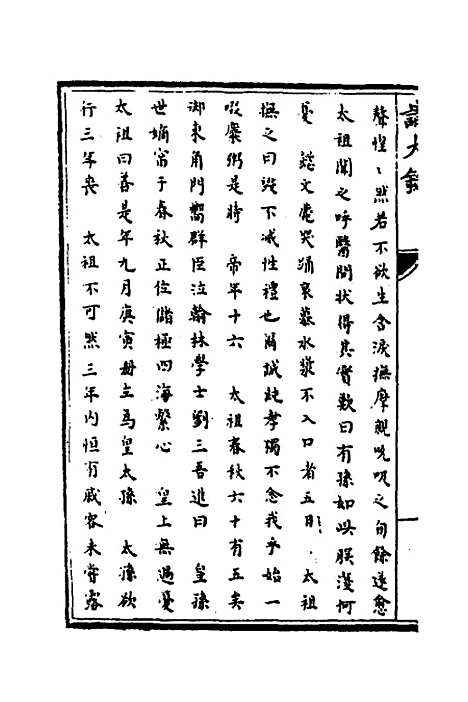 聲惶〻然若不欲生含淚撫摩親吮吸之旬餘遂愈
太祖聞之呼醫問狀得其實歎曰有孫如此朕復何
憂　懿文薨哭踊哀慕水漿不入口者五日　太祖
撫之曰毀不滅性禮也爾誠純孝獨不念我乎始一
啜麋粥是時　帝年十六　太祖春秋六十有五矣
御東角門嚮群臣泣翰林學士劉三吾進曰　皇孫
世嫡富于春秋正位儲極四海繫心　皇上無過憂
太祖曰善是年九月庚寅册立為皇太孫　太孫欲
行三年喪　太祖不可然三年內恒有戚容未嘗露